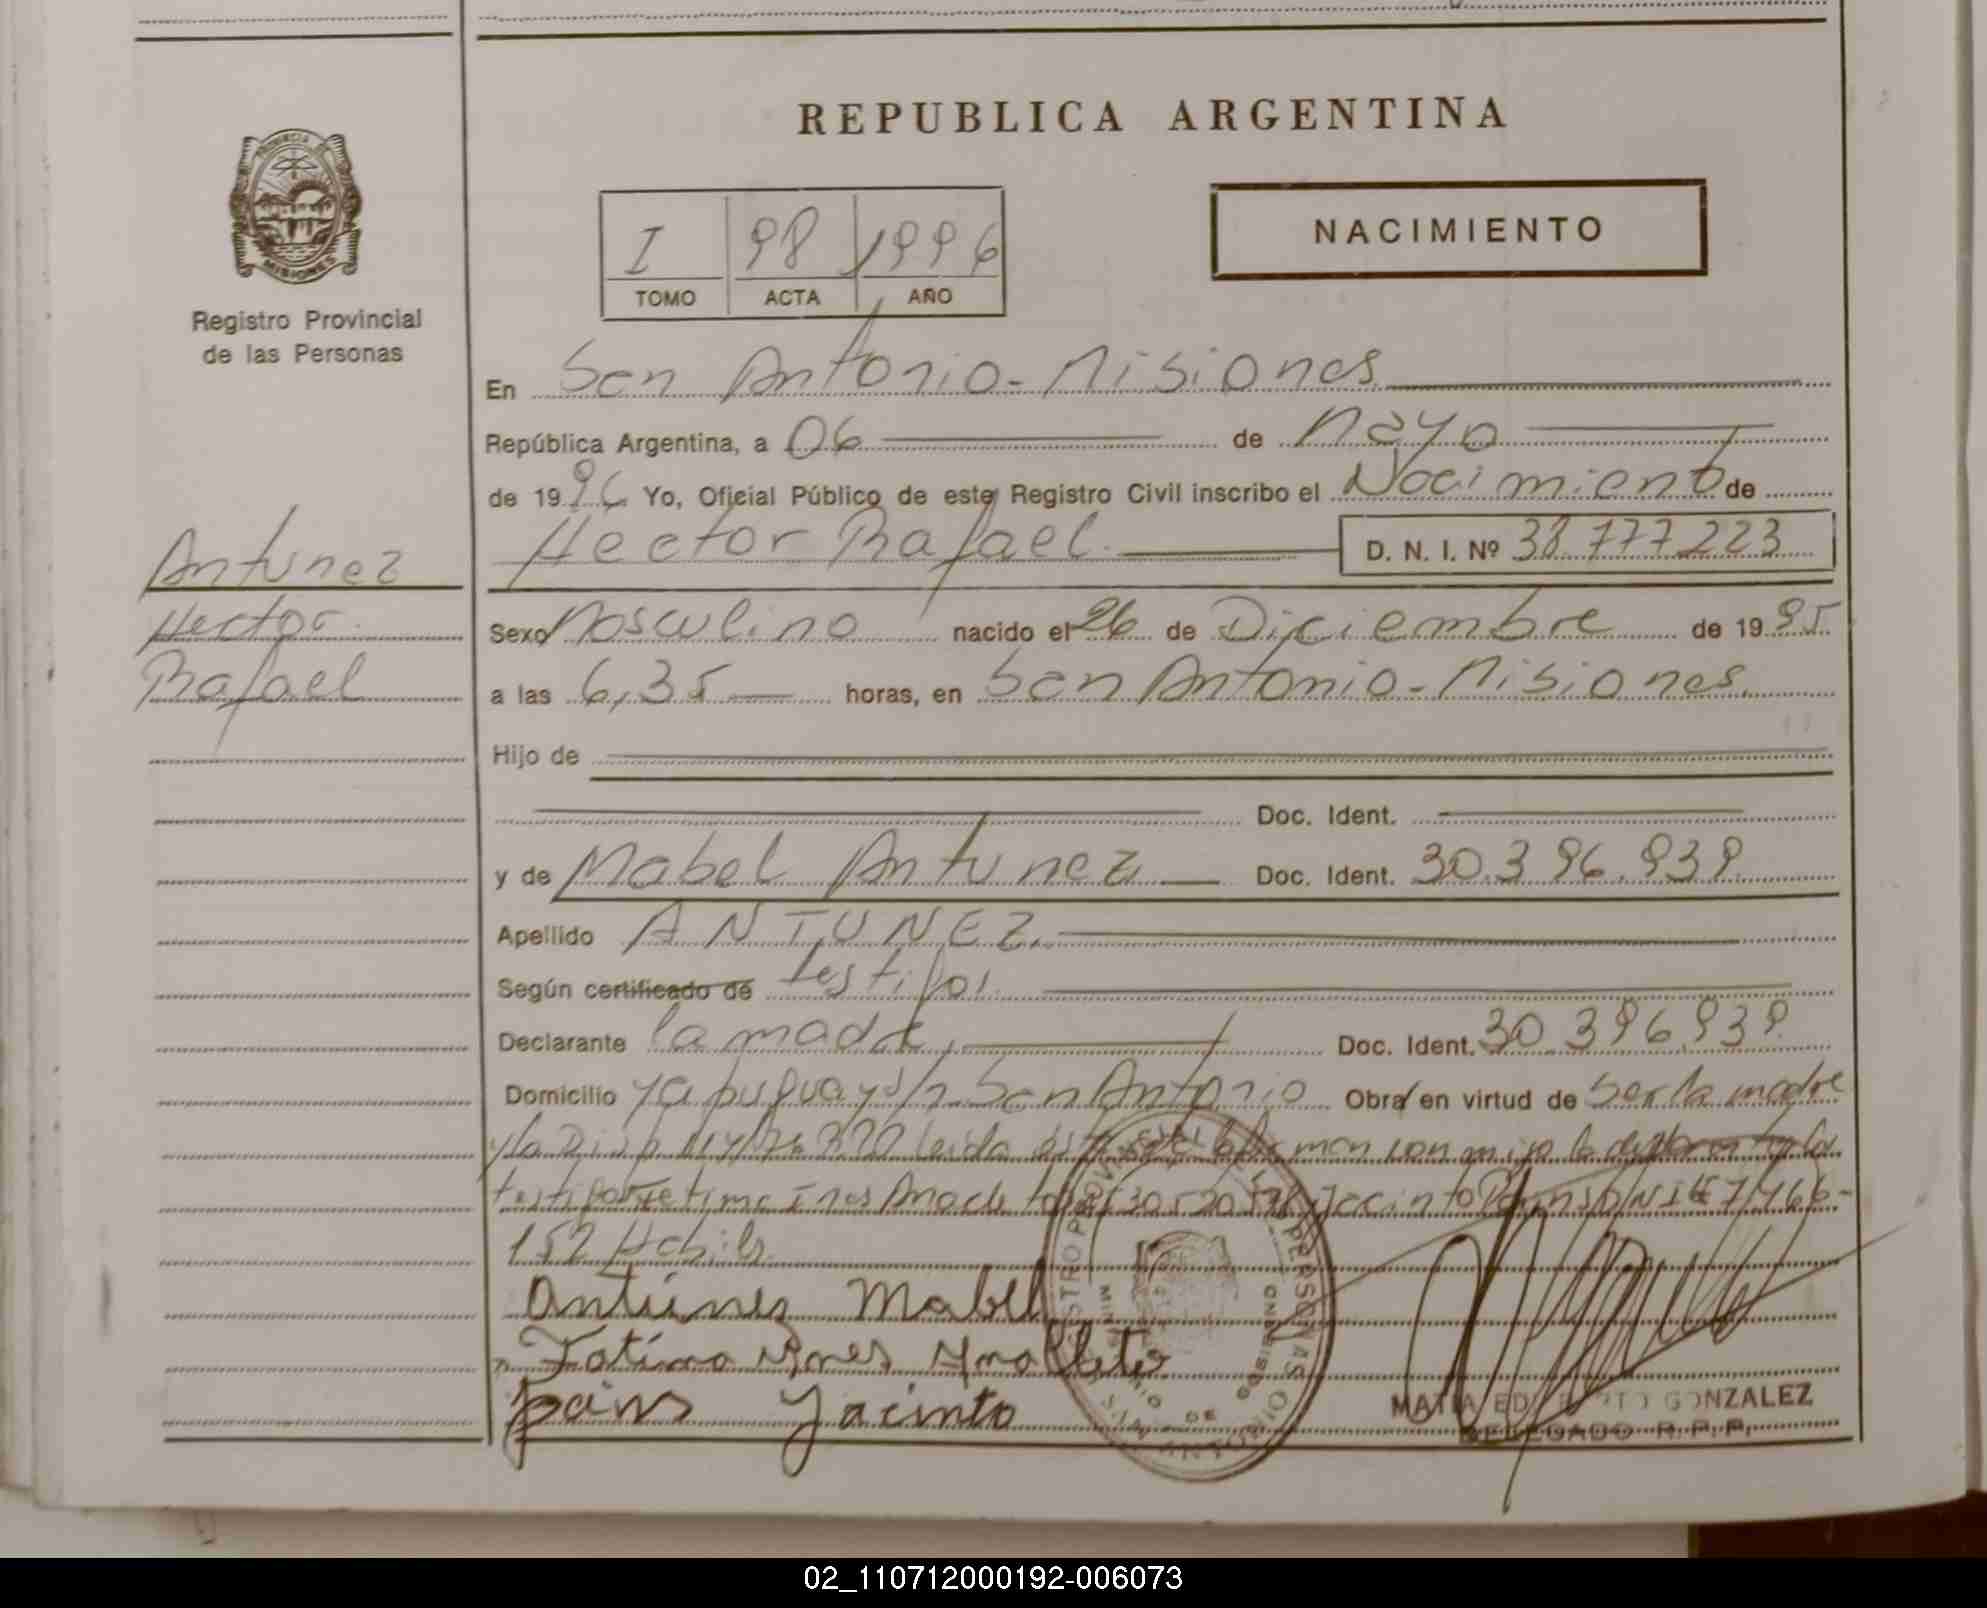 REPUBLICA ARGENTINA
PROVINCIA DE
MISIONES
Registro Provincial
de las Personas
I 98 1996
TOMO ACTA AÑO
NACIMIENTO
En San Antonio - Misiones
República Argentina, a 06 de Mayo
de 1996 Yo, Oficial Público de este Registro Civil inscribo el Nacimiento de
Hector Rafael. D. N. I. Nº 38.777.223
Antunez
Hector
Rafael
Sexo Masculino nacido el 26 de Diciembre de 1995
a las 6,35 horas, en San Antonio - Misiones.
Hijo de
Doc. Ident.
y de Mabel Antunez Doc. Ident. 30.396.939.
Apellido ANTUNEZ.
Según certificado de testigos.
Declarante la madre, Doc. Ident. 30.396.939.
Domicilio Yapuguay s/n San Antonio Obra en virtud de ser la madre
y la leida la
testigos Fatima Ines Jacinto
152
Antúnez Mabel
Fatima Ines
Pains Jacinto
GONZALEZ
DELEGADO R. P. P.
02_110712000192-006073